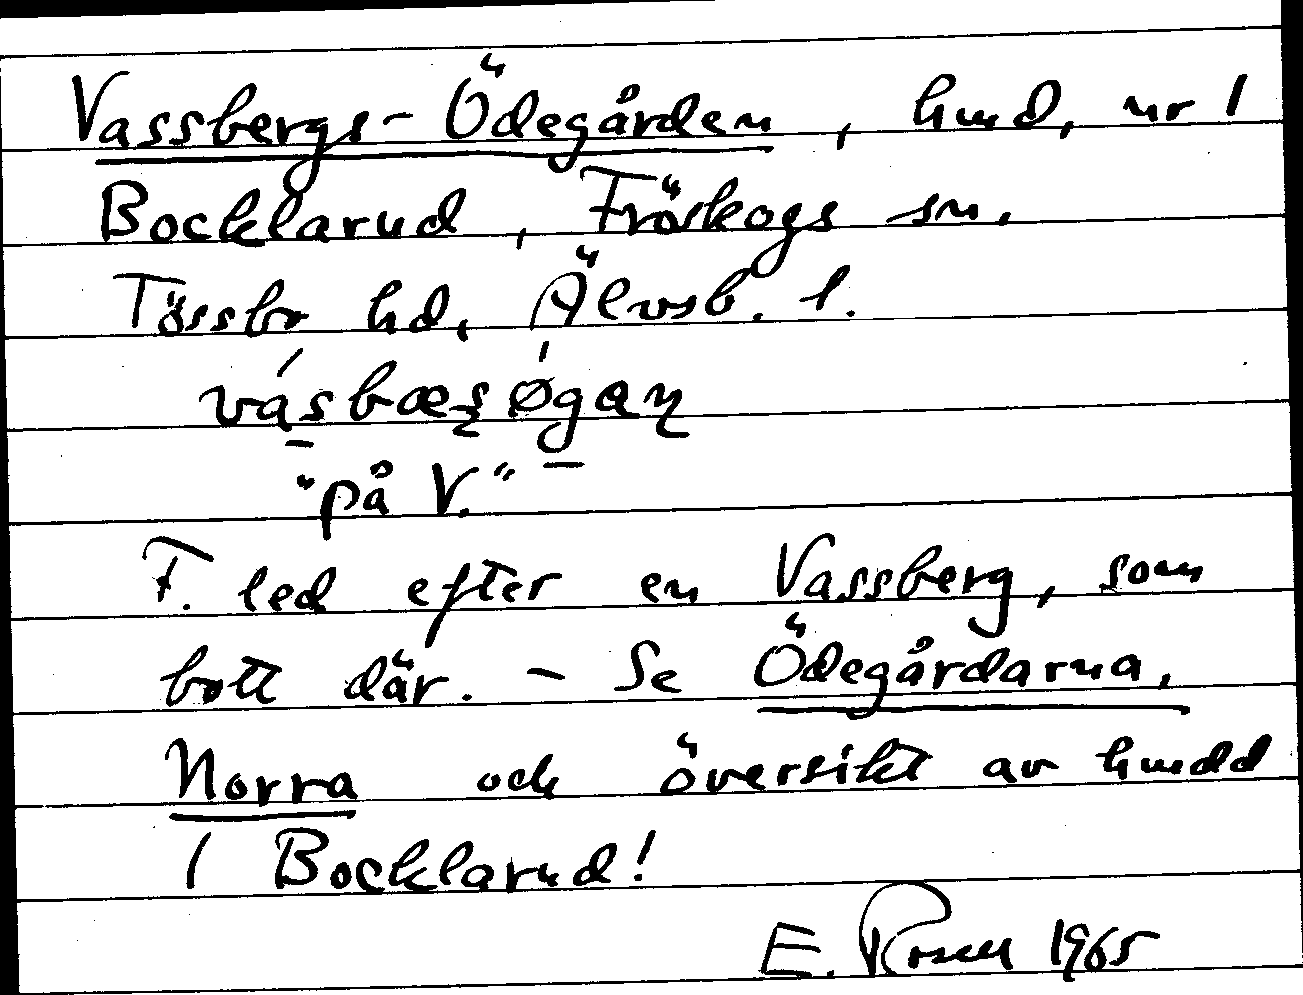 Vassbergs-Ödegården, hmd, nr 1
Bocklarud, Fröskogs sn.
Tössbo hd, Älvsb. l.
"på V."
F. led efter en Vassberg, som
bott där. - Se Ödegårdarna,
Norra och översikt av hmdd
i Bocklarud!
E. Rosell 1965